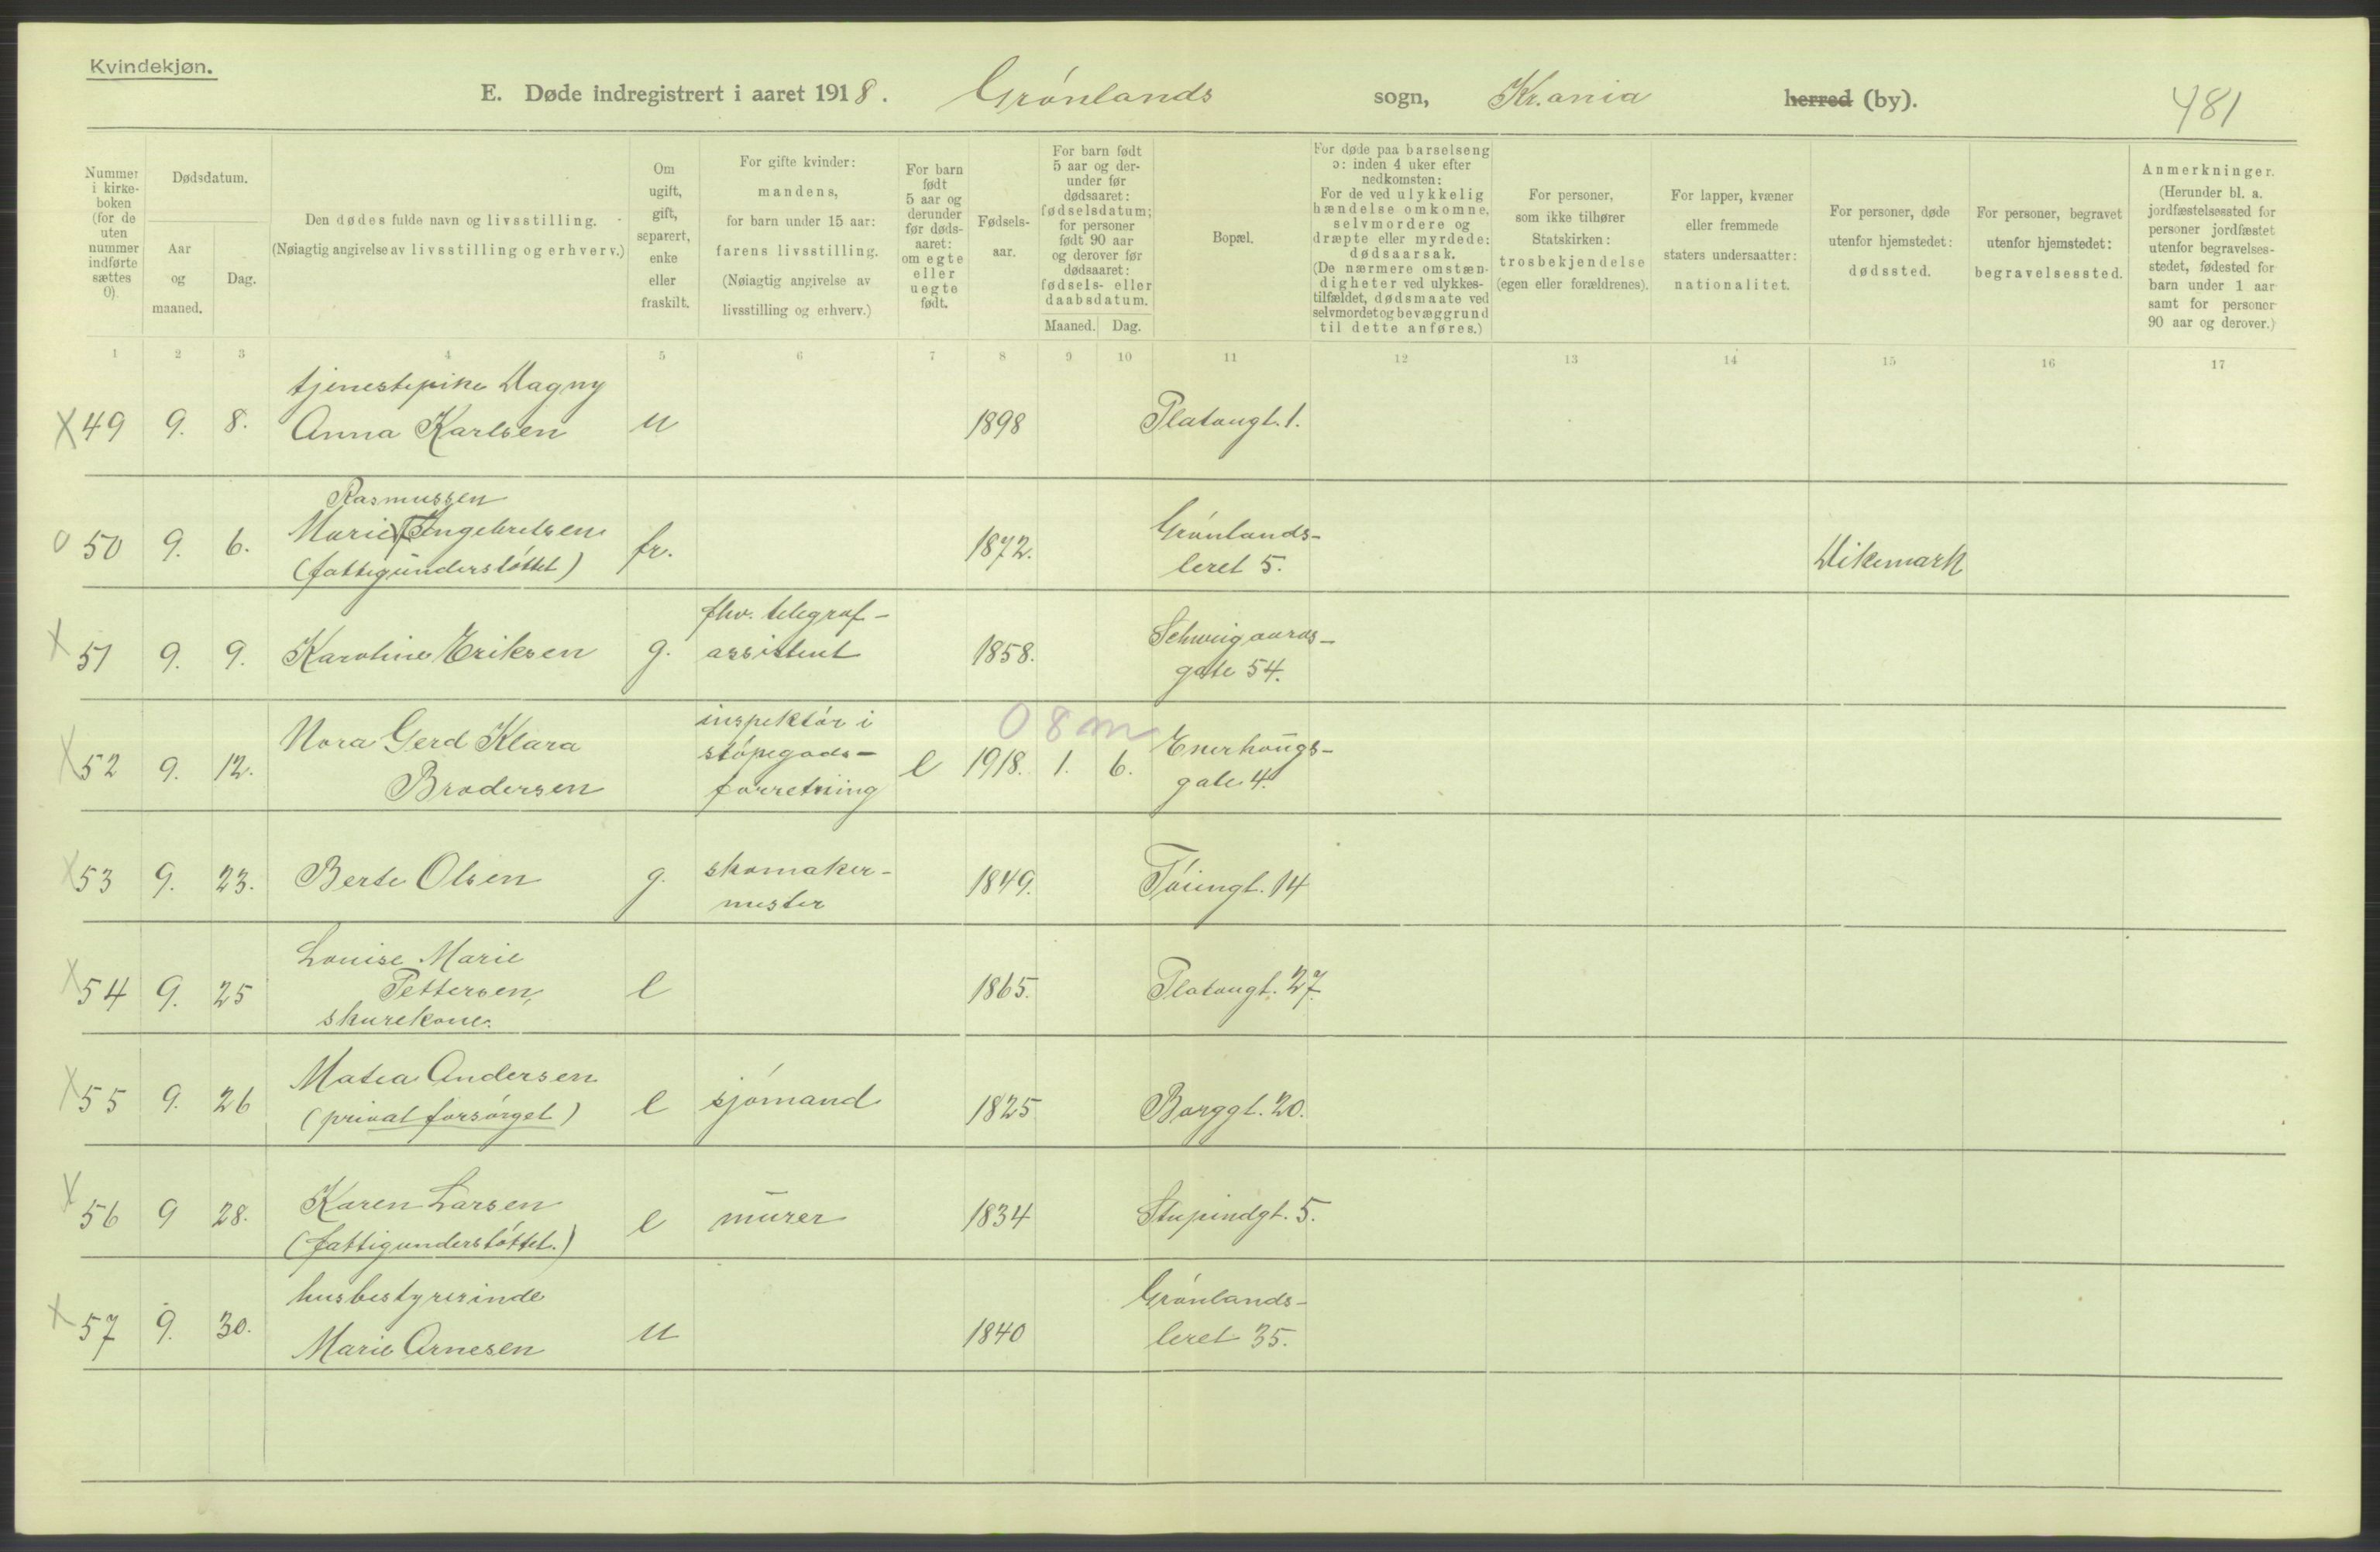 Kvindekjøn.
E. Døde indregistrert i aaret 1918. Grønlands sogn, Kr.ania herred (by). 481
Nummer i kirkeboken (for de uten nummer indførte sættes 0).
Dødsdatum.
Aar og maaned.
Dag.
Den dødes fulde navn og livsstilling.
(Nøiagtig angivelse av livsstilling og erhverv.)
Om ugift, gift, separert, enke eller fraskilt.
For gifte kvinder: mandens, for barn under 15 aar: farens livsstilling. (Nøiagtig angivelse av livsstilling og erhverv.)
For barn født 5 aar og derunder før dødsaaret: om egte eller uegte født.
Fødselsaar.
For barn født 5 aar og derunder før dødsaaret: fødselsdatum; for personer født 90 aar og derover før dødsaaret: fødsels- eller daabsdatum.
Maaned. Dag.
Bopæl.
For døde paa barselseng ɔ: inden 4 uker efter nedkomsten: For de ved ulykkelig hændelse omkomne, selvmordere og dræpte eller myrdede: dødsaarsak. (De nærmere omstændigheter ved ulykkestilfældet, dødsmaate ved selvmordet og bevæggrund til dette anføres.)
For personer, som ikke tilhører Statskirken: trosbekjendelse (egen eller forældrenes).
For lapper, kvæner eller fremmede staters undersaatter: nationalitet.
For personer, døde utenfor hjemstedet: dødssted.
For personer, begravet utenfor hjemstedet: begravelsessted.
Anmerkninger. (Herunder bl. a. jordfæstelsessted for personer jordfæstet utenfor begravelsesstedet, fødested for barn under 1 aar samt for personer 90 aar og derover.)
1 2 3 4 5 6 7 8 9 10 11 12 13 14 15 16 17
tjenestepike Dagny
X 49 9. 8. Anna Karlsen u 1898 Platougt. 1.
Rasmussen
0 50 9. 6. Marie Ingebretsen fr. 1872. Grønlands-
(fattigunderstøttet) leret 5. Dikemark
fhv. telegraf-
X 51 9. 9. Karoline Eriksen g. assistent 1858. Schweigaards-
gate 54.
inspektør i 0 8 m
X 52 9. 12. Nora Gerd Klara støpegods- e 1918. 1. 6. Enerhaugs-
Brodersen forretning gate 4.
X 53 9. 23. Berte Olsen g. skomaker- 1849. Tøiengt. 14
mester
Louise Marie
X 54 9. 25 Pettersen, e 1865. Platougt. 27.
skurekone.
X 55 9. 26 Matea Andersen e sjømand 1825 Borggt. 20.
(privat forsørget)
X 56 9 28. Karen Larsen e murer 1834 Stupindgt. 5.
(fattigunderstøttet.)
husbestyrerinde Grønlands-
X 57 9. 30. Marie Arnesen u 1840 leret 35.